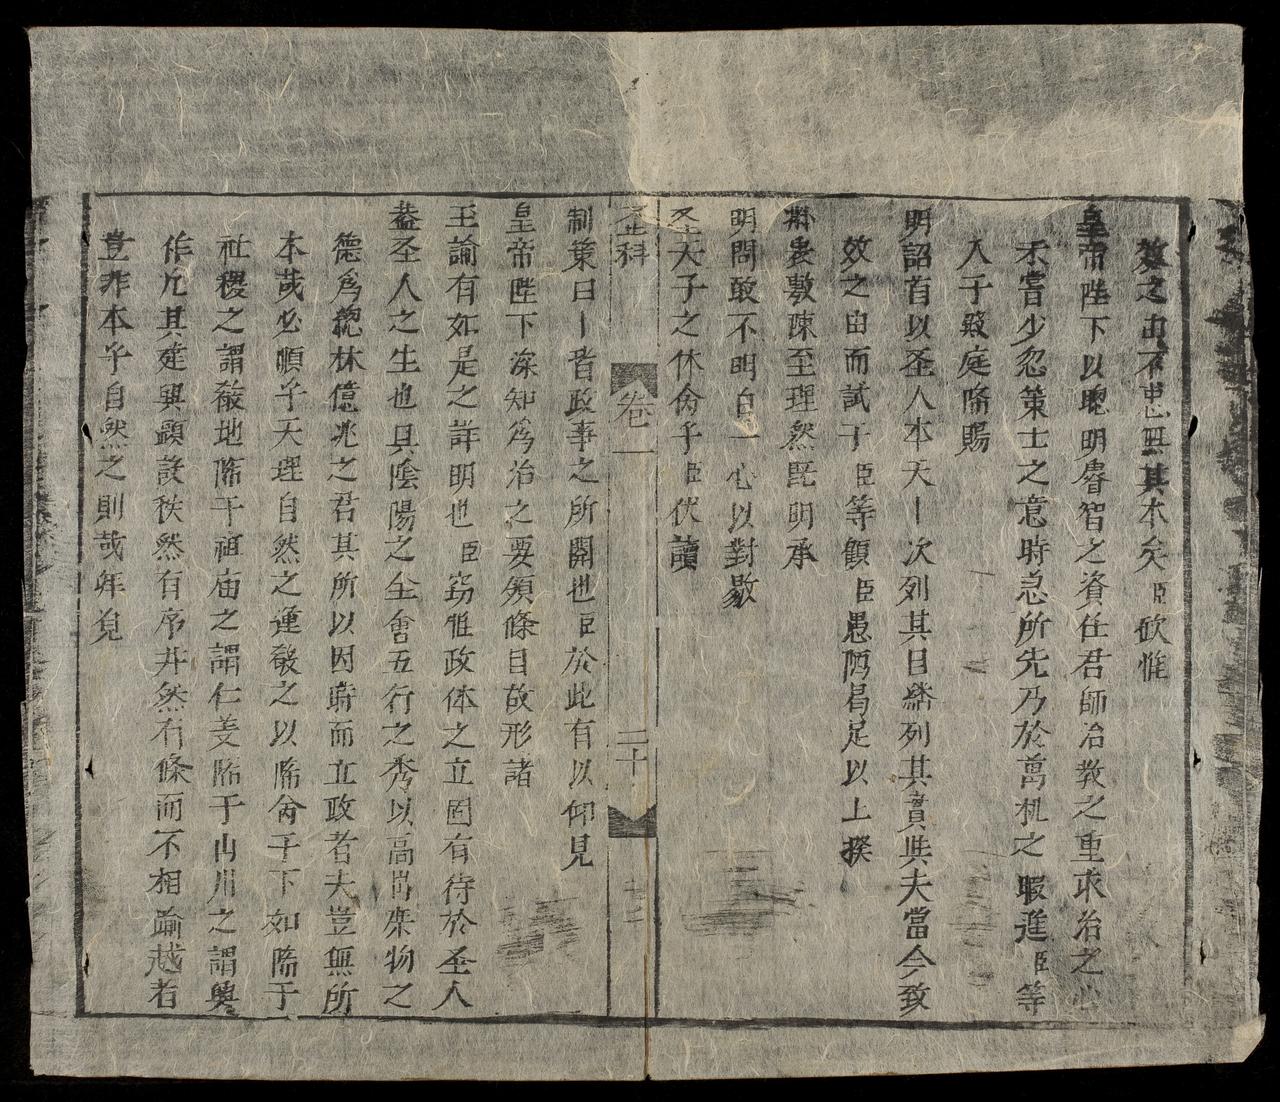 效之由不患無其本矣臣欽惟
皇帝陛下以聰明睿智之資任君師治教之重求治之心
不嘗少忽策士之意時急所先乃於萬机之暇進臣等
入子發庭降賜
明詔首以圣人本天次列其目條列其實與夫當今致
效之由而試于臣等顧臣愚陋曷足以上揆
敷陳至理然既明承
明問敢不明白一心以對敭
圣天子之休命乎臣伏讀
圣科
卷一
二十
制策曰政事之所開也臣於此有以仰見
皇帝陛下深知為治之要領條目故形諸
王諭有如是之詳明也臣窃惟政体之立固有待於圣人
盖圣人之生也具陰陽之全會五行之秀以高出庶物之
德為總林億兆之君其所以因時而立政者夫豈無所
本哉必順乎天理自然之運殽之以降命于下如降于
社稷之謂殽地降于祖庙之謂仁義降于山川之謂興
作凡其建興顯設秩然有序井然有條而不相踰越者
豈非本乎自然之則哉